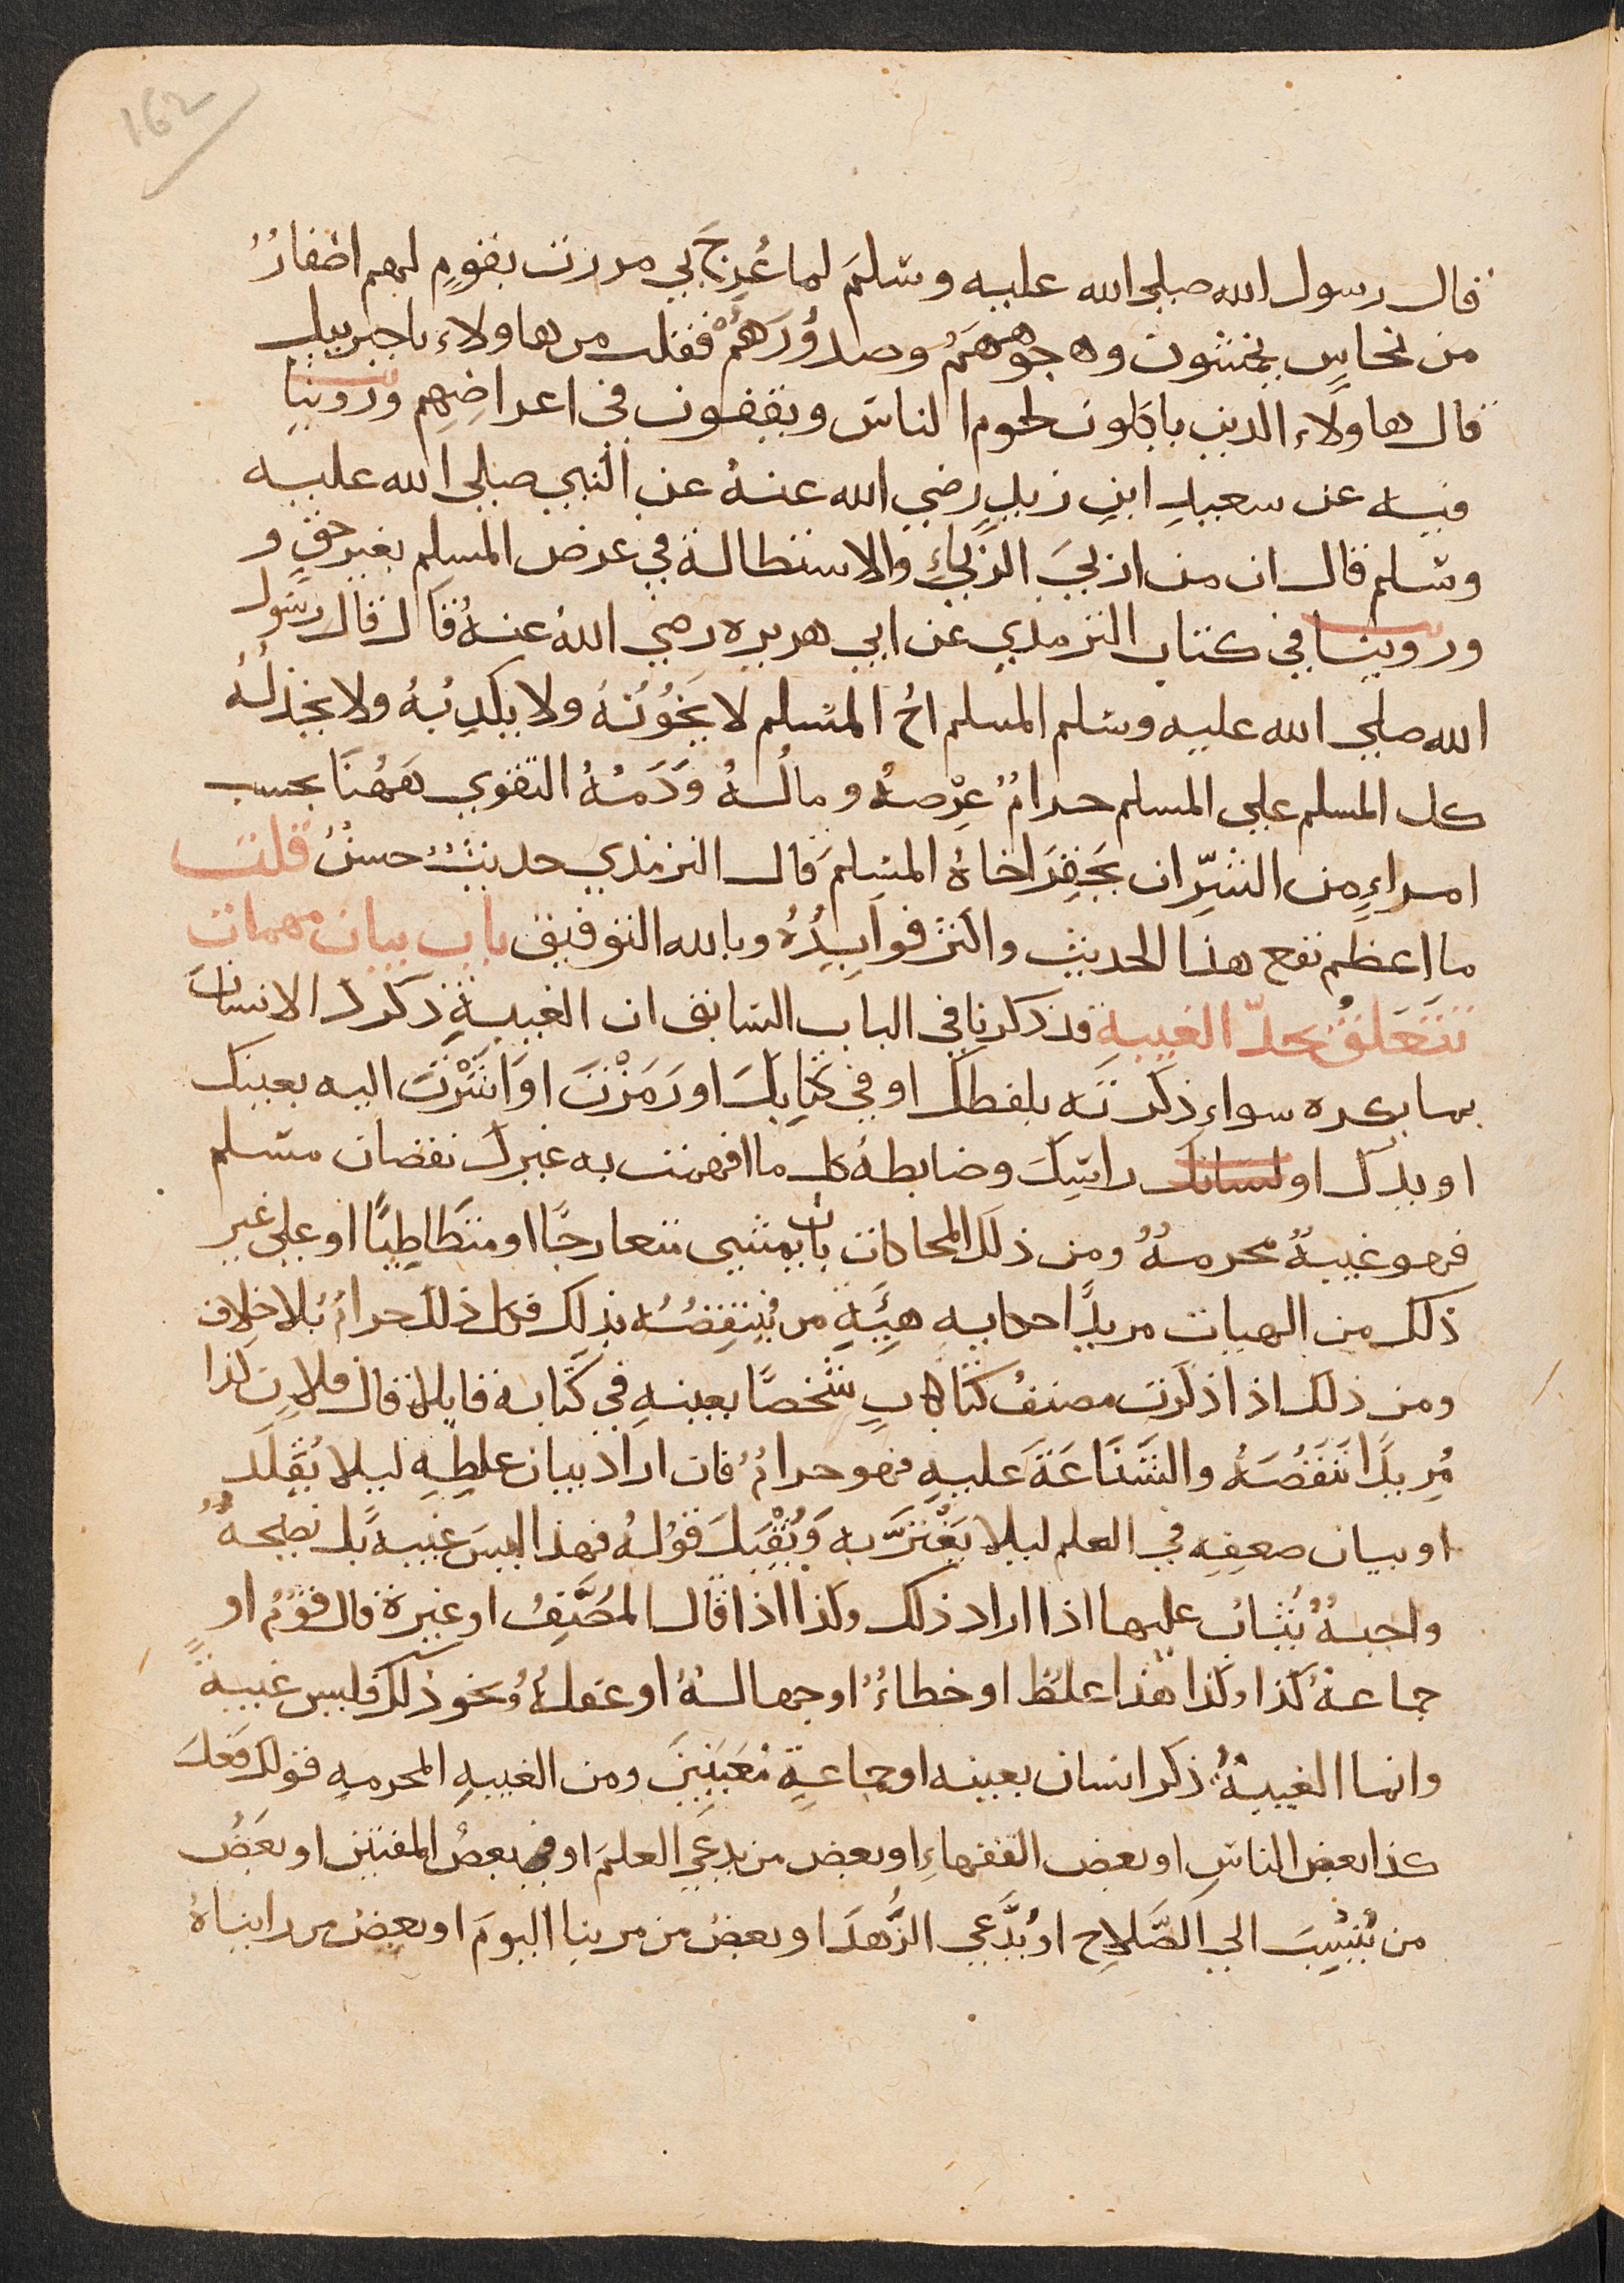 162
قال رسول الله صلى الله عليه وسَلمَ لما عُرِجَ بي مررت بقومٍ لهم اظفارٌ
من نحاسٍ يخمشون وجوههم وصدوُرَهُمْ فقلت من هاولاء يا جبريل
قال هاولاَء الذين ياكلون لحوم الناس ويقفون في اعراضِهِم وروينا
فيه عن سعيدِ ابنِ زيدٍ رضي الله عنهُ عن النبي صلى الله عليه
وسَلم قال ان من اربيَ الرِّباءِ والاستطالة في عرض المسلم بغير حقٍ و
وروينا في كتاب الترمذي عن ابي هريره رضي اللهُ عنهُ قال قال رسول
الله صلي الله عليه وسلم المسلم اخُ المسلم لا يَخُوُنهُ ولا يكذِبُهُ ولا يخذلُهُ
كل المسلم علي المسلم حرامٌ عِرْضهُ ومالُهُ وَدَمُهُ التقوي هَهُنَا بحسب
امراءٍ من الشرِّ ان يَحَقِرَ اخاهُ المسِلمَ قال الترمذي حديثٌ حسنٌ قلت
ما اعظم نفع هذا الحديث واكثر فوايدُهُ وبالله التوفيق باب بيان مهمات
تتَعَلقُ بحدّ الغيبهِ قد ذكرنا في الباب السابق ان الغيبةِ ذكرك الانسانَ
بما يكره سواء ذكرتَه بلفظك او في كتابكَ او رَمَزْتَ اوَ اشَرْتَ اليه بعينك
او يدك او لسانك راسِكَ وضابطهُ كل ما افهمت به غيرك نقصان مسلم
فهو غيبهٌ محرمهٌ ومن ذلك المحاكات بان يمشي متعارجًا او متطَاطِيًا او علي غير
ذلك من الهيات مريدًا حكايه هيئَةِ من يُنِتقِصُهُ بذلك فكل ذلك حرامٌ بلا خلاف
ومن ذلك اذا ذكرت مصنفُ كتَابٍ شخصًا بعينهِ في كتابه قايلا قال فلان كذا
مُرِيدًا تَنَقُصَهُ والشَنَاعَةَ عليهِ فهو حرامٌ فان اراد بيان غلطِهِ ليلا يُقَلَد
او بيان ضعفِهِ في العلم ليلا يَغْترَّ به وَيُقْبَلَ قوْلُهُ فهذا ليسَ غيبهً بل نصيحهٌ
واجبهٌ يُثابُ عليها اذا اراد ذلك وكذا اذا قال المُصَنِّفُ او غيرهُ قال قوْمٌ او
جماعهٌ كذا وكذا هذا غلطٌ او خطاءٌ او جهالهٌ او غفلهٌ ونحو ذلك فليس غيبهً
وانما الغيبهُ ذكر انسان بعينه او جماعةٍ مُعَينِينَ ومن الغيبهِ المحرمهِ قولك فعَلَ
كذا بعض الناسِ او بعض الفقهاءِ او بعض من يدعي العلمَ او بعضُ المفتين او بَعضُ
من يُنسَبَ الي الصَّلاحِ او يُدَّعي الزُّهدَ او بعضُ من مر بنا اليومَ او بعضُ من رايناهُ